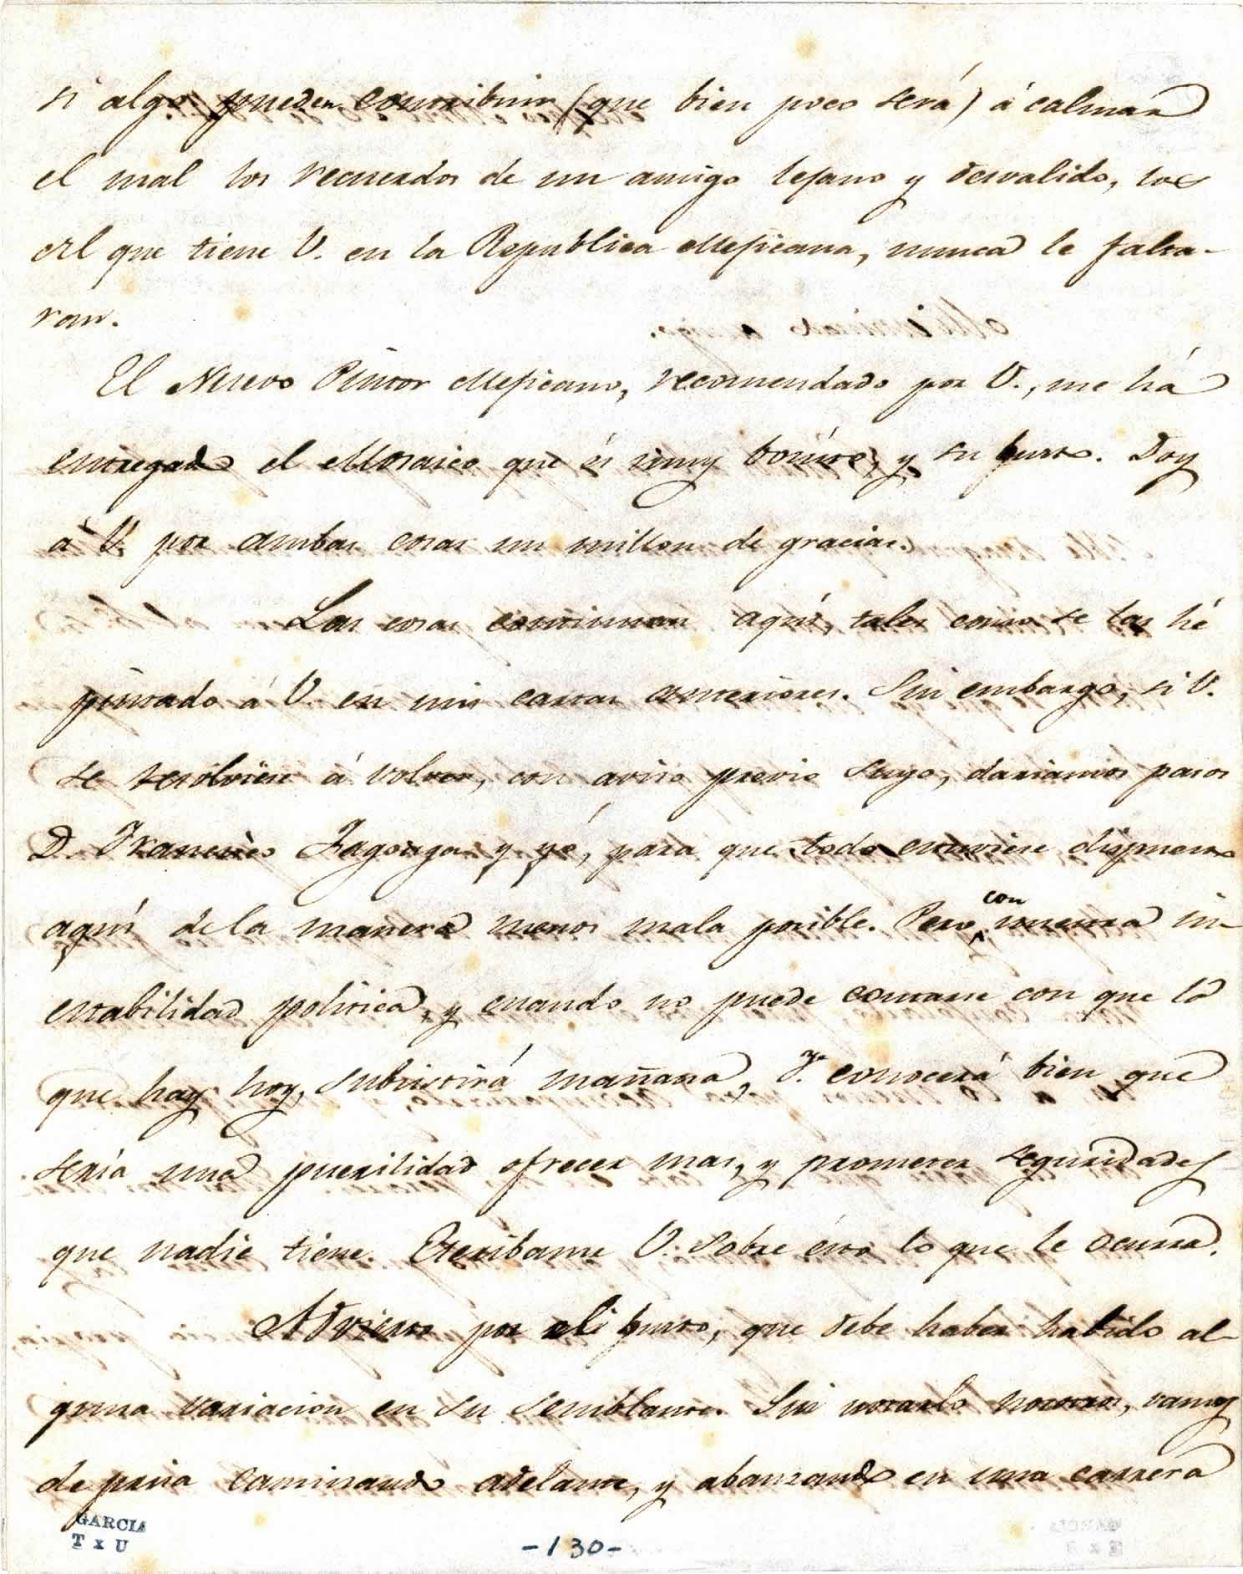 si algo pueden contribuir (que bien poco será) á calmar
el mal los recuerdos de un amigo lejano y desvalido, los
del que tiene V. en la Republica Mejicana, nunca le falta-
ran.
El Nuevo Pintor Mejicano, recomendado por V., me há
entregado el Mosaico que és muy bonito, y su busto. Doy
á V. por ambas cosas un millon de gracias.
Las cosas continuan aquí, tales como se las hé
pintado á V. en mis cartas anteriores. Sin embargo, si V.
se resolviese á volver, con aviso previo suyo, dariamos pasos
D. Francisco Fagoaga y yó, para que todo estuviese dispuesto
aquí de la manera menos mala posible. Pero con nuestra in-
estabilidad politica, y cuando no puede contarse con que lo
que hay hoy, subsistirá mañana, V. conocerá bien que
seria una puerilidad ofrecer mas, y prometer seguridades
que nadie tiene. Escribame V. sobre ésto lo que le ocurra.
Advierto por el busto, que debe haber habido al-
guna variacion en su semblante. Sin notarlo nosotros, vamos
de prisa caminando adelante, y abanzando en una carrera
GARCIA
T x U
-130-